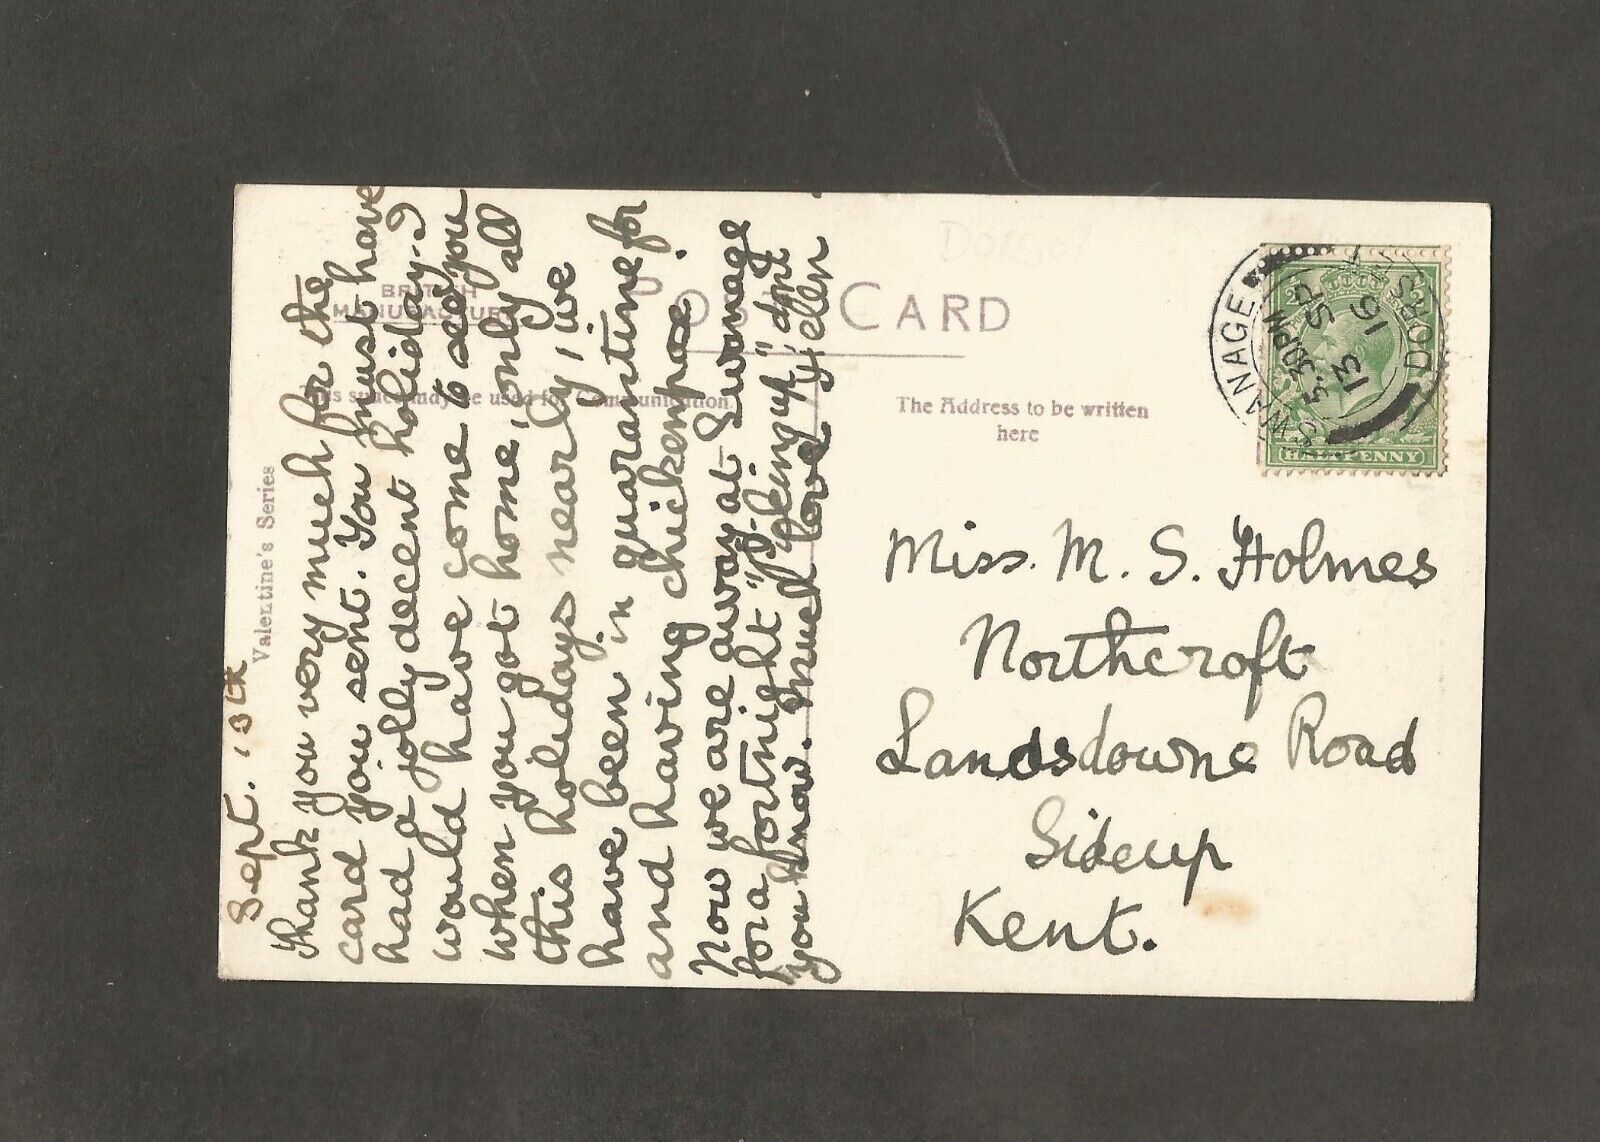 Sept. 13th
Thank you very much for the
card you sent. You must have
had a jolly decent holiday. I
would have come to see you
when you got home, only all
this holidays nearly, we
have been in quarantine for
and having chickenpox.
Now we are away at Swanage
for a fortnight "picking up," dont
you know. Much love
Valentine's Series
BRITISH
MANUFACTURE
POST CARD
This space may be used for Communication
The Address to be written
here
Dorset
SWANAGE
5.30PM
13 SP
16
DORSET
HALFPENNY
Miss. M. S. Holmes
Northcroft
Landsdowne Road
Sidcup
Kent.